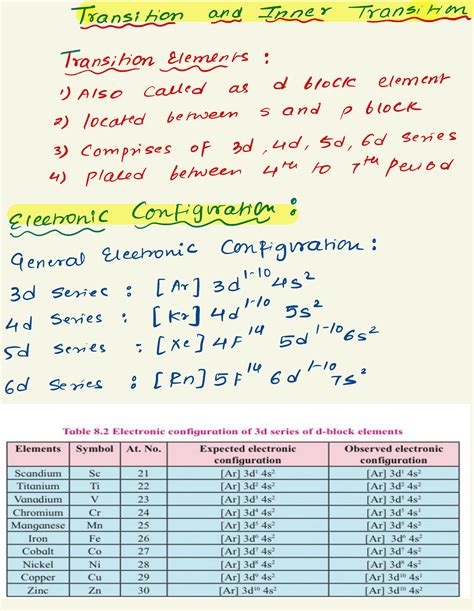 Transition and Inner Transition
Transition Elements :
1) Also called as d block element
2) located between s and p block
3) Comprises of 3d, 4d, 5d, 6d series
4) placed between 4th to 7th period
Electronic Configuration :
General Electronic Configuration :
3d series : [Ar] 3d¹⁻¹⁰ 4s²
4d series : [Kr] 4d¹⁻¹⁰ 5s²
5d series : [Xe] 4F¹⁴ 5d¹⁻¹⁰ 6s²
6d series : [Rn] 5F¹⁴ 6d¹⁻¹⁰ 7s²
Table 8.2 Electronic configuration of 3d series of d-block elements
Elements Symbol At. No. Expected electronic configuration Observed electronic configuration
Scandium Sc 21 [Ar] 3d¹ 4s² [Ar] 3d¹ 4s²
Titanium Ti 22 [Ar] 3d² 4s² [Ar] 3d² 4s²
Vanadium V 23 [Ar] 3d³ 4s² [Ar] 3d³ 4s²
Chromium Cr 24 [Ar] 3d⁴ 4s² [Ar] 3d⁵ 4s¹
Manganese Mn 25 [Ar] 3d⁵ 4s² [Ar] 3d⁵ 4s²
Iron Fe 26 [Ar] 3d⁶ 4s² [Ar] 3d⁶ 4s²
Cobalt Co 27 [Ar] 3d⁷ 4s² [Ar] 3d⁷ 4s²
Nickel Ni 28 [Ar] 3d⁸ 4s² [Ar] 3d⁸ 4s²
Copper Cu 29 [Ar] 3d⁹ 4s² [Ar] 3d¹⁰ 4s¹
Zinc Zn 30 [Ar] 3d¹⁰ 4s² [Ar] 3d¹⁰ 4s²